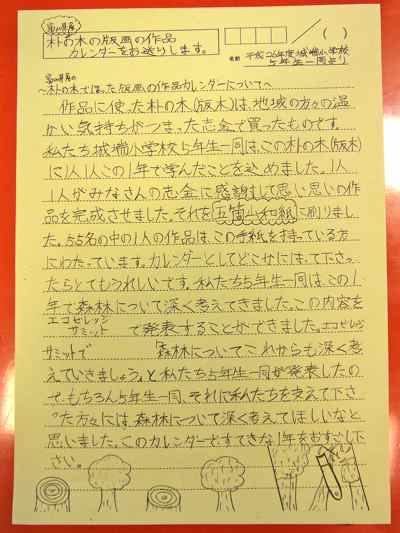 富山県産
朴の木の版画の作品
カレンダーをお送りします。
/ ( )
名前 平成26年度城端小学校
5年生一同より
富山県産の
~朴の木でほった版画の作品カレンダーについて~
作品に使った朴の木(版木)は、地域の方々の温
かい気持ちがつまった志金で買ったものです。
私たち城端小学校5年生一同は、この朴の木(版木)
に1人1人この1年で学んだことを込めました。1人
1人がみなさんの志金に感謝して思い思いの作
品を完成させました。それを五箇山和紙に刷りまし
た。55名の中の1人の作品は、この手紙を持っている方
にわたっています。カレンダーとしてどこかにはって下さっ
たらとてもうれしいです。私たち5年生一同は、この1
年で森林について深く考えてきました。この内容を
エコビレッジ
サミット で発表することができました。エコビレッジ
サミットで 「森林についてこれからも深く考
えていきましょう。」と私たち5年生一同が発表したの
で、もちろん5年生一同、それに私たちを支えて下さ
った方々には、森林について深く考えてほしいなと
思いました。このカレンダーとすてきな1年をおすごし下
さい。